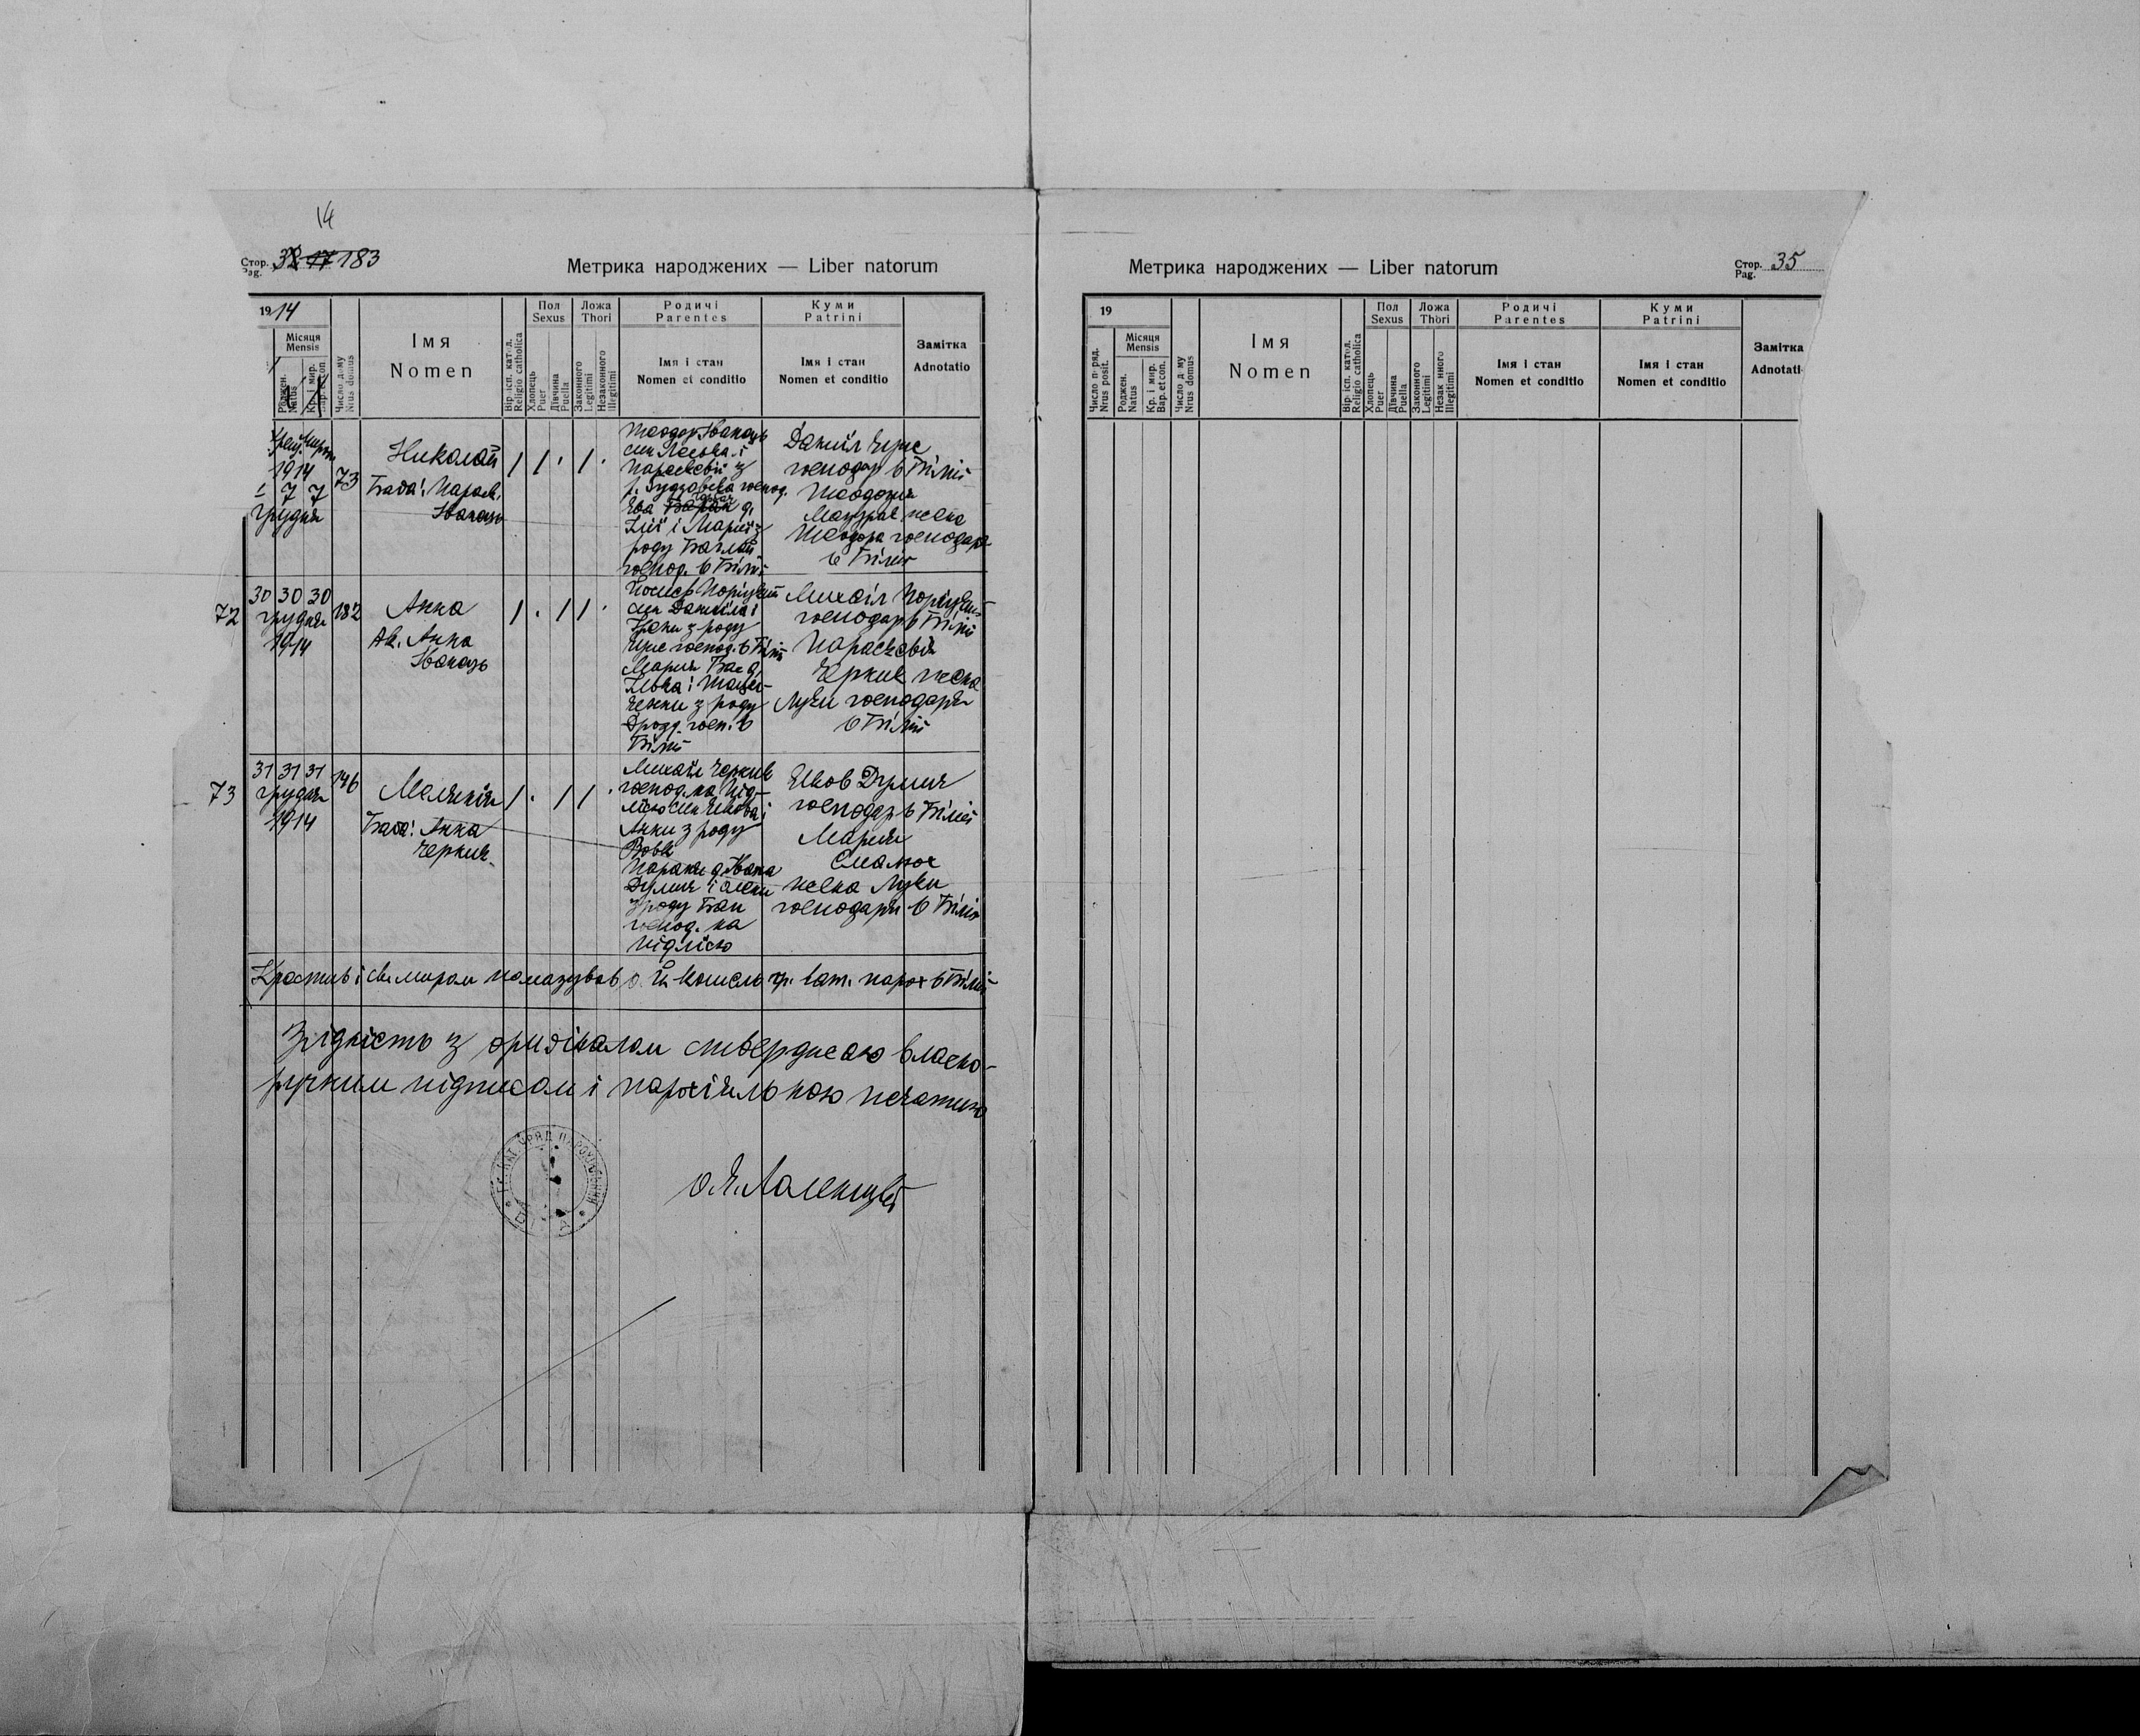 14
Стор. Pag. 183
Метрика народжених — Liber natorum
1914
Місяця
Mensis
Роджен. Natus
Кр. і мир. Bap. et con.
Число дому
Nrus domus
Імя
Nomen
Вір. ісп. катол.
Religio catholica
Пол
Sexus
Хлопець
Puer
Дівчина
Puella
Ложа
Thori
Законного
Legitimi
Незаконного
Illegitimi
Родичі
Parentes
Імя і стан
Nomen et conditio
Куми
Patrini
Імя і стан
Nomen et conditio
Замітка
Adnotatio
1914
7 7
грудня
73
Николай
Баба: Параск.
Іванець
1 1 . 1 .
Теодор Іванець
син Леська і
Параскевії з
Ева
Ілії і Марії з
роду
господ. в Білій
Даниїл
господар в Білій
Теодозія
Мазурак жена
Теодора господаря
в Білій
72
30 30 30
грудня
1914
182
Анна
Ак. Анна
Іванець
1 . 1 1 .
Йосиф Поріцкий
син Даниїла і
з роду
господ. в Білій
Мария Бас д.
Илька і
з роду
Дрозд. госп. в
Білій
Михаіл Поріцкий
господар в Білій
Параскевія
Черкик жена
Луки господаря
в Білій
73
31 31 31
грудня
1914
146
Мелянія
Баба: Анна
Черкик
1 . 1 1 .
Михаіл Черкик
господ. на Під-
лісю син Якова і
Анни з роду
Вовк
Параня д. Івана
Думич і
з роду Бан
господ. на
Підлісю
Яков Думич
господар в Білій
Мария
жена Луки
господаря в Білій
Крестив і св. миром помазував о. гр. кат. парох в Білій
Згідність з оригіналом стверджаю власно-
ручним підписом і парохіяльною печатию
ГР. КАТ. УРЯД ПАРОХІЯЛЬНИЙ
Метрика народжених — Liber natorum
Стор. Pag. 35
19
Число поряд.
Nrus posit.
Місяця
Mensis
Роджен.
Natus
Кр. і мир.
Bap. et con.
Число дому
Nrus domus
Імя
Nomen
Вір. ісп. катол.
Religio catholica
Пол
Sexus
Хлопець
Puer
Дівчина
Puella
Ложа
Thori
Законного
Legitimi
Незаконного
Illegitimi
Родичі
Parentes
Імя і стан
Nomen et conditio
Куми
Patrini
Імя і стан
Nomen et conditio
Замітка
Adnotati